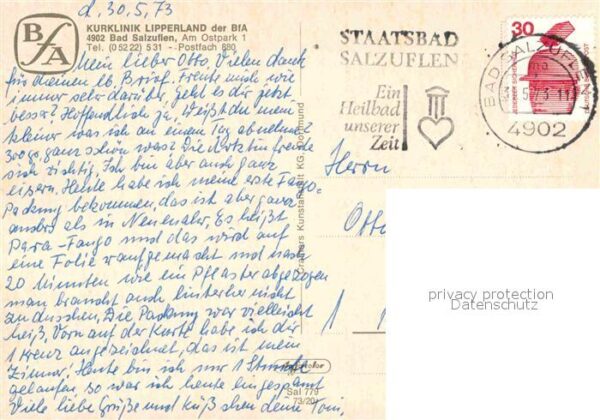 d. 30.5.73
BfA
KURKLINIK LIPPERLAND der BfA
4902 Bad Salzuflen, Am Ostpark 1
Tel. (05222) 531 - Postfach 880
Mein lieber Otto, Vielen dank
für deinen lb. Brief. Freute mich wie
immer sehr darüber, Geht es dir jetzt
besser? Hoffendlich ja, Weißt du mein
kleiner was ich an einem Tag abnehme?
300 g, ganz schön was? Die Ärztin freute
sich richtig, Ich bin aber auch ganz
eisern. Heute habe ich meine erste Fango-
Packung bekommen, das ist aber ganz
anders als in Neuenahr, Es heißt
Para-Fango und das wird auf
eine Folie raufgemacht und nach
20 Minuten wie ein Pflaster abgezogen
man braucht auch hinterher nicht
zu duschen, Die Packung war vielleicht
heiß, Vorn auf der Karte habe ich dir
1 Kreuz angezeichnet, das ist mein
Zimmer. Heute bin ich nur 1 Stunde
gelaufen, so war ich heute eingespannt
Viele liebe Grüße und Küßchen deine Toni,
STAATSBAD
SALZUFLEN
Ein
Heilbad
unserer
Zeit
BAD SALZUFLEN
4902
30
Herrn
Otto
Cramers Kunstanstalt KG, Dortmund
Sal 779
73/20
privacy protection
Datenschutz